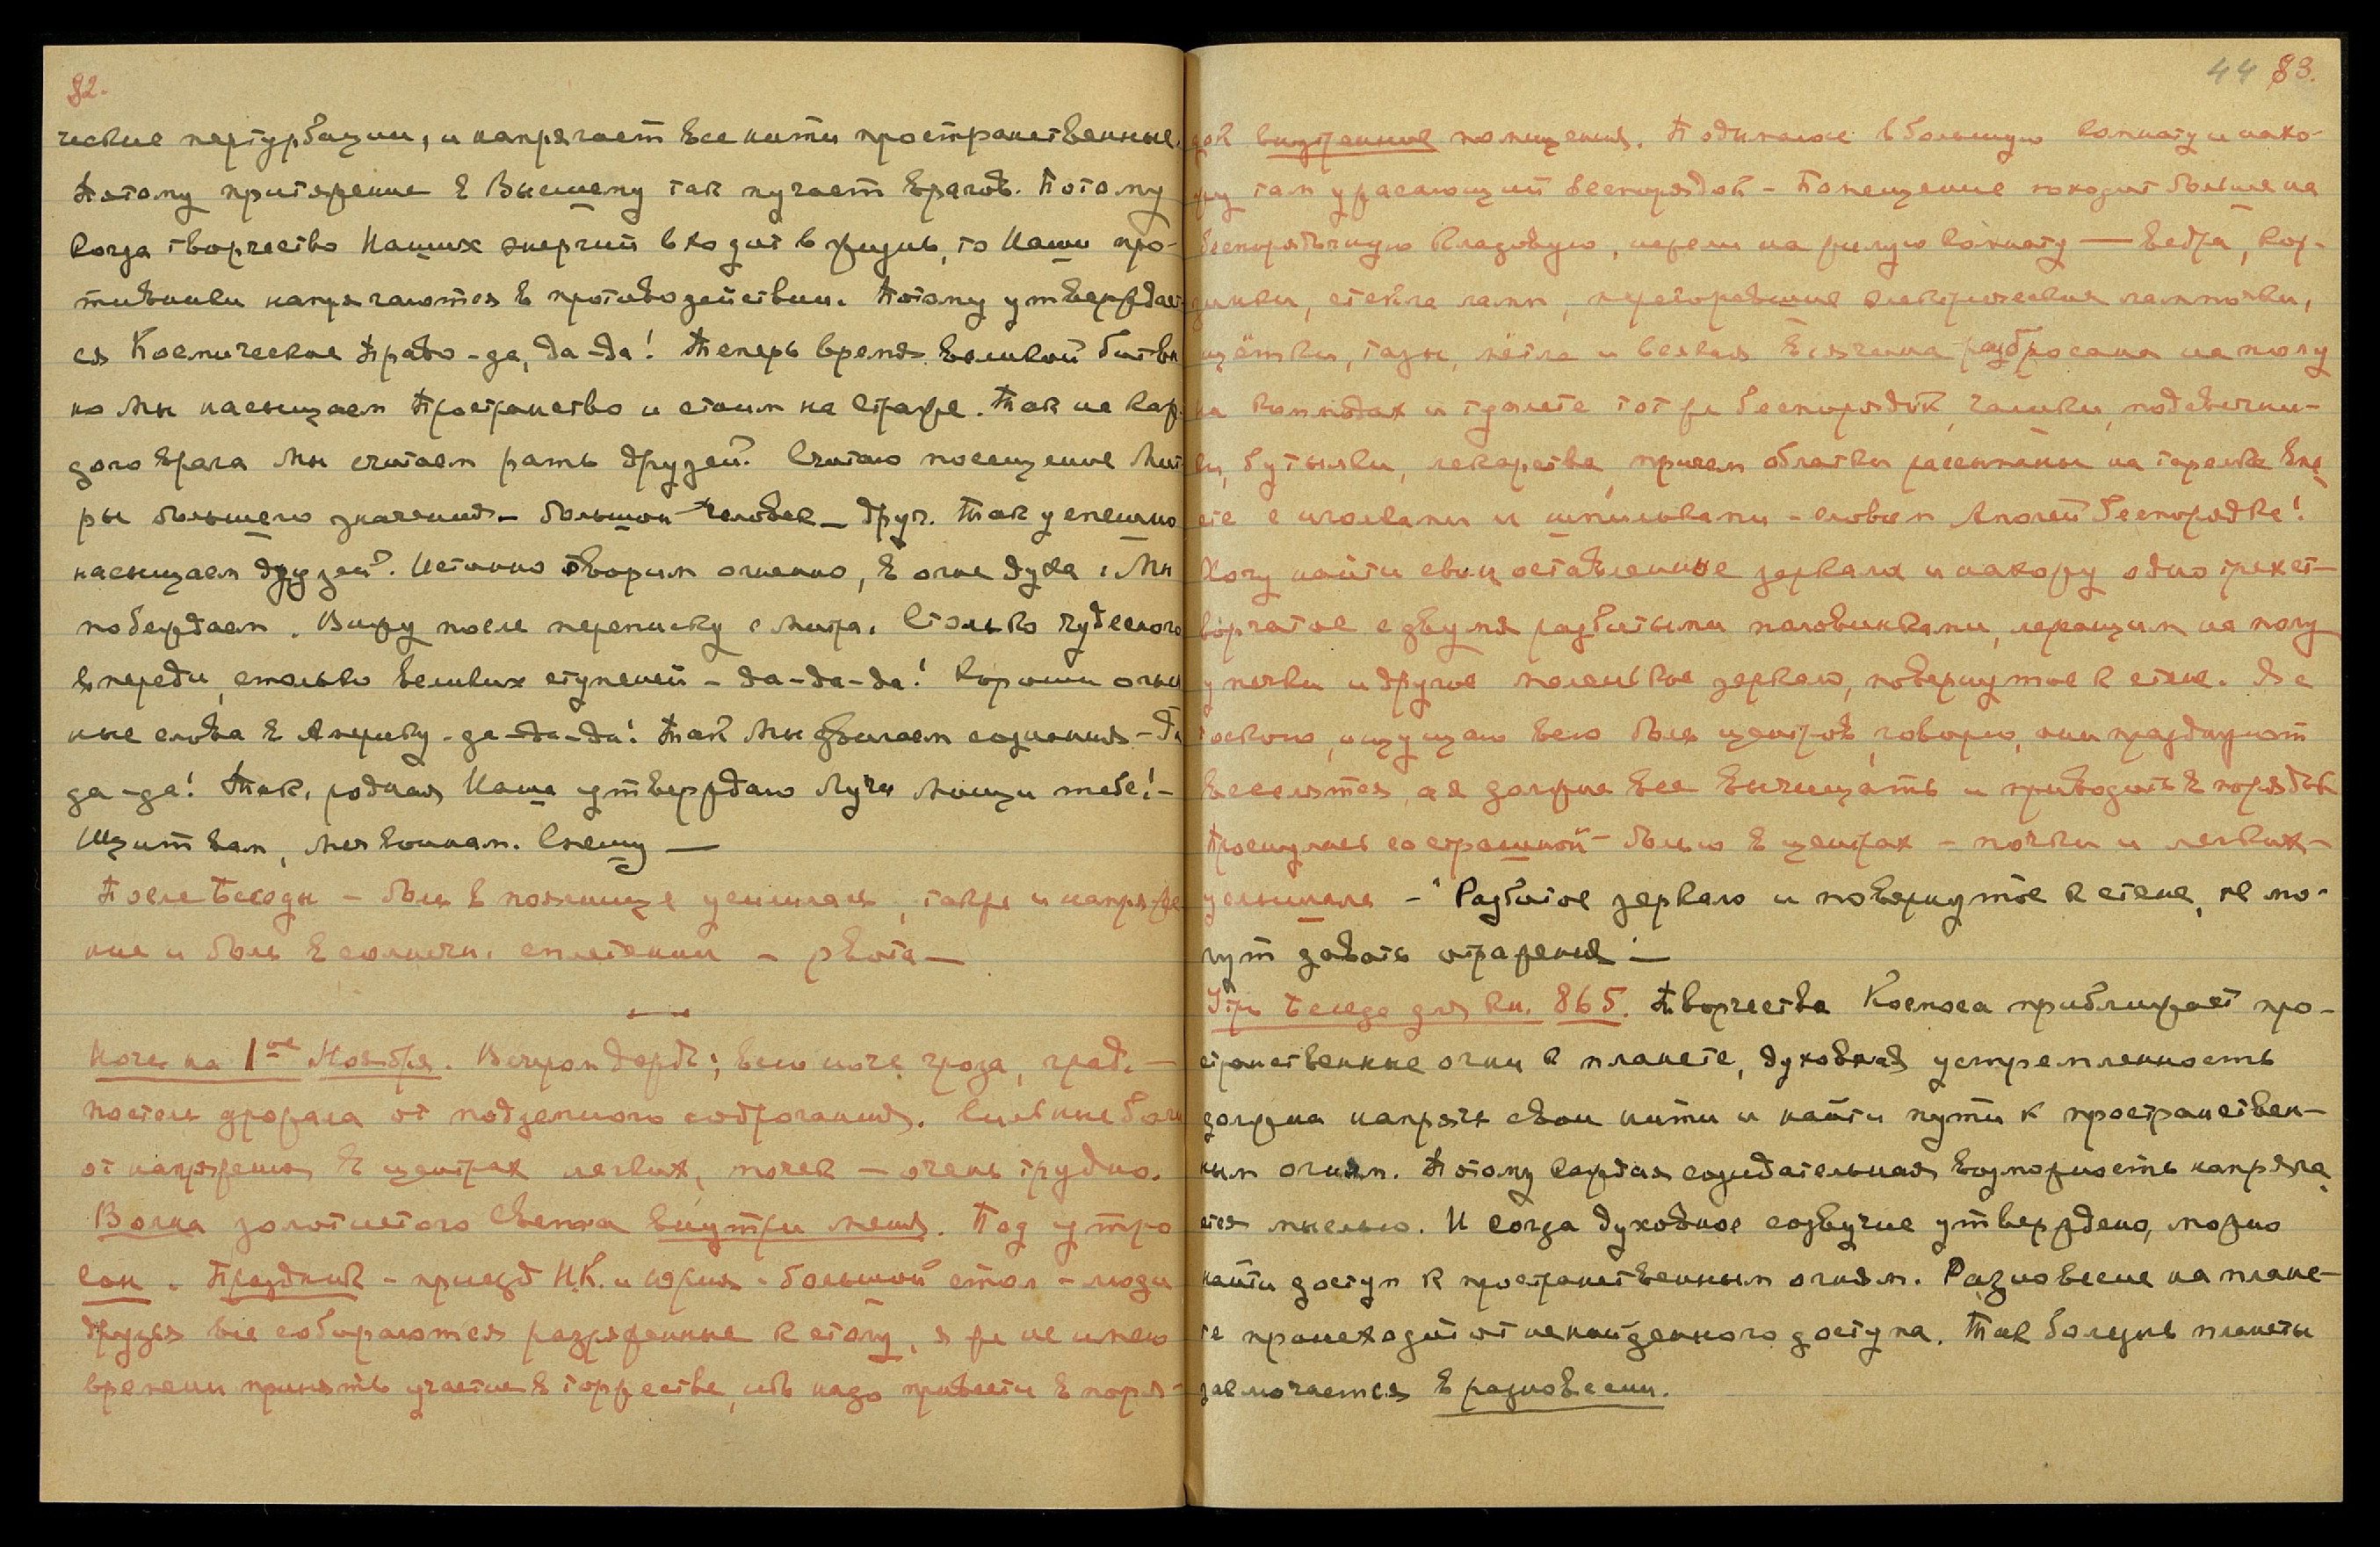 82.
ческие пертурбации, и напрягает все нити пространственные.
Потому притяжение к Высшему так пугает врагов. Потому
когда творчество Наших энергий входит в жизнь, то Наши про-
тивники напрягаются в противодействии. Потому утверждает-
ся Космическое Право - да, да-да! Теперь время великой битвы
но Мы насыщаем пространство и стоим на страже. Так на каж-
дого врага Мы считаем рать друзей. Считаю посещение
ры большего значения - большой человек - друг. Так успешно
насыщаем друзей. Истинно творим огненно, в огне духа. Мы
побеждаем. Вижу после переписку с Столько чудесного
впереди, столько великих ступеней - да-да-да! Хороши огнен
ные слова в Америку - да-да-да! Так Мы сознания - Да
да-да! Так, родная Наша утверждаю Лучи Мощи тебе! -
Щит вам, Меч воинам. Спешу —
После Беседы - боль в пояснице усилилась, также и напряже
ние и боль в солнечн. сплетении - рвота —
Ночь на 1ое Ноября. Вечером дождь; всю ночь гроза, град. —
постель дрожала от подземного содрогания. Сильные боли
от напряжения в центрах легких, почек — очень трудно.
Волна золотистого Света внутри меня. Под утро
сон. Праздник - приезд Н.К. и Юрия - большой стол - люди
друзья все собираются разряженные к столу, я же не имею
времени принять участие в торжестве, ибо надо привести в поря-
44 83.
док внутренние помещения. Поднимаюсь в большую комнату и нахо-
жу там ужасающий беспорядок - Помещение походит больше на
беспорядочную кладовую, нежели на жилую комнату — ведра, кор-
зинки, стекла ламп, перегоревшие электрические лампочки,
щётки, тазы, мётла и всякая всячина разбросана на полу
на комодах и туалете тот же беспорядок, чашки, подсвечни-
ки, бутылки, лекарства, причем облатки рассыпаны на тарелке вме
сте с иголками и шпильками - словом Апогей беспорядка!
Хочу найти свои оставленные зеркала и нахожу одно трехст-
ворчатое с двумя разбитыми половинками, лежащим на полу
у печки и другое маленькое зеркало, повернутое к стене. Я с
тоскою, ощущаю всю боль центров, говорю, они празднуют
веселятся, а я должна все вычищать и приводить в порядок
Проснулась со страшной болью в центрах - почки и легких -
услышала - "Разбитое зеркало и повернутое к стене, не мо-
гут давать отражения" —
Утр. Беседа для кн. 865. Творчество Космоса приближает про-
странственные огни к планете, духовная устремленность
должна напрячь свои нити и найти пути к пространствен-
ным огням. Потому каждая созидательная возможность напряга
ется мыслью. И когда духовное созвучие утверждено, можно
найти доступ к пространственным огням. Разновесие на плане-
те происходит от ненайденного доступа. Так болезнь планеты
заключается в разновесии.